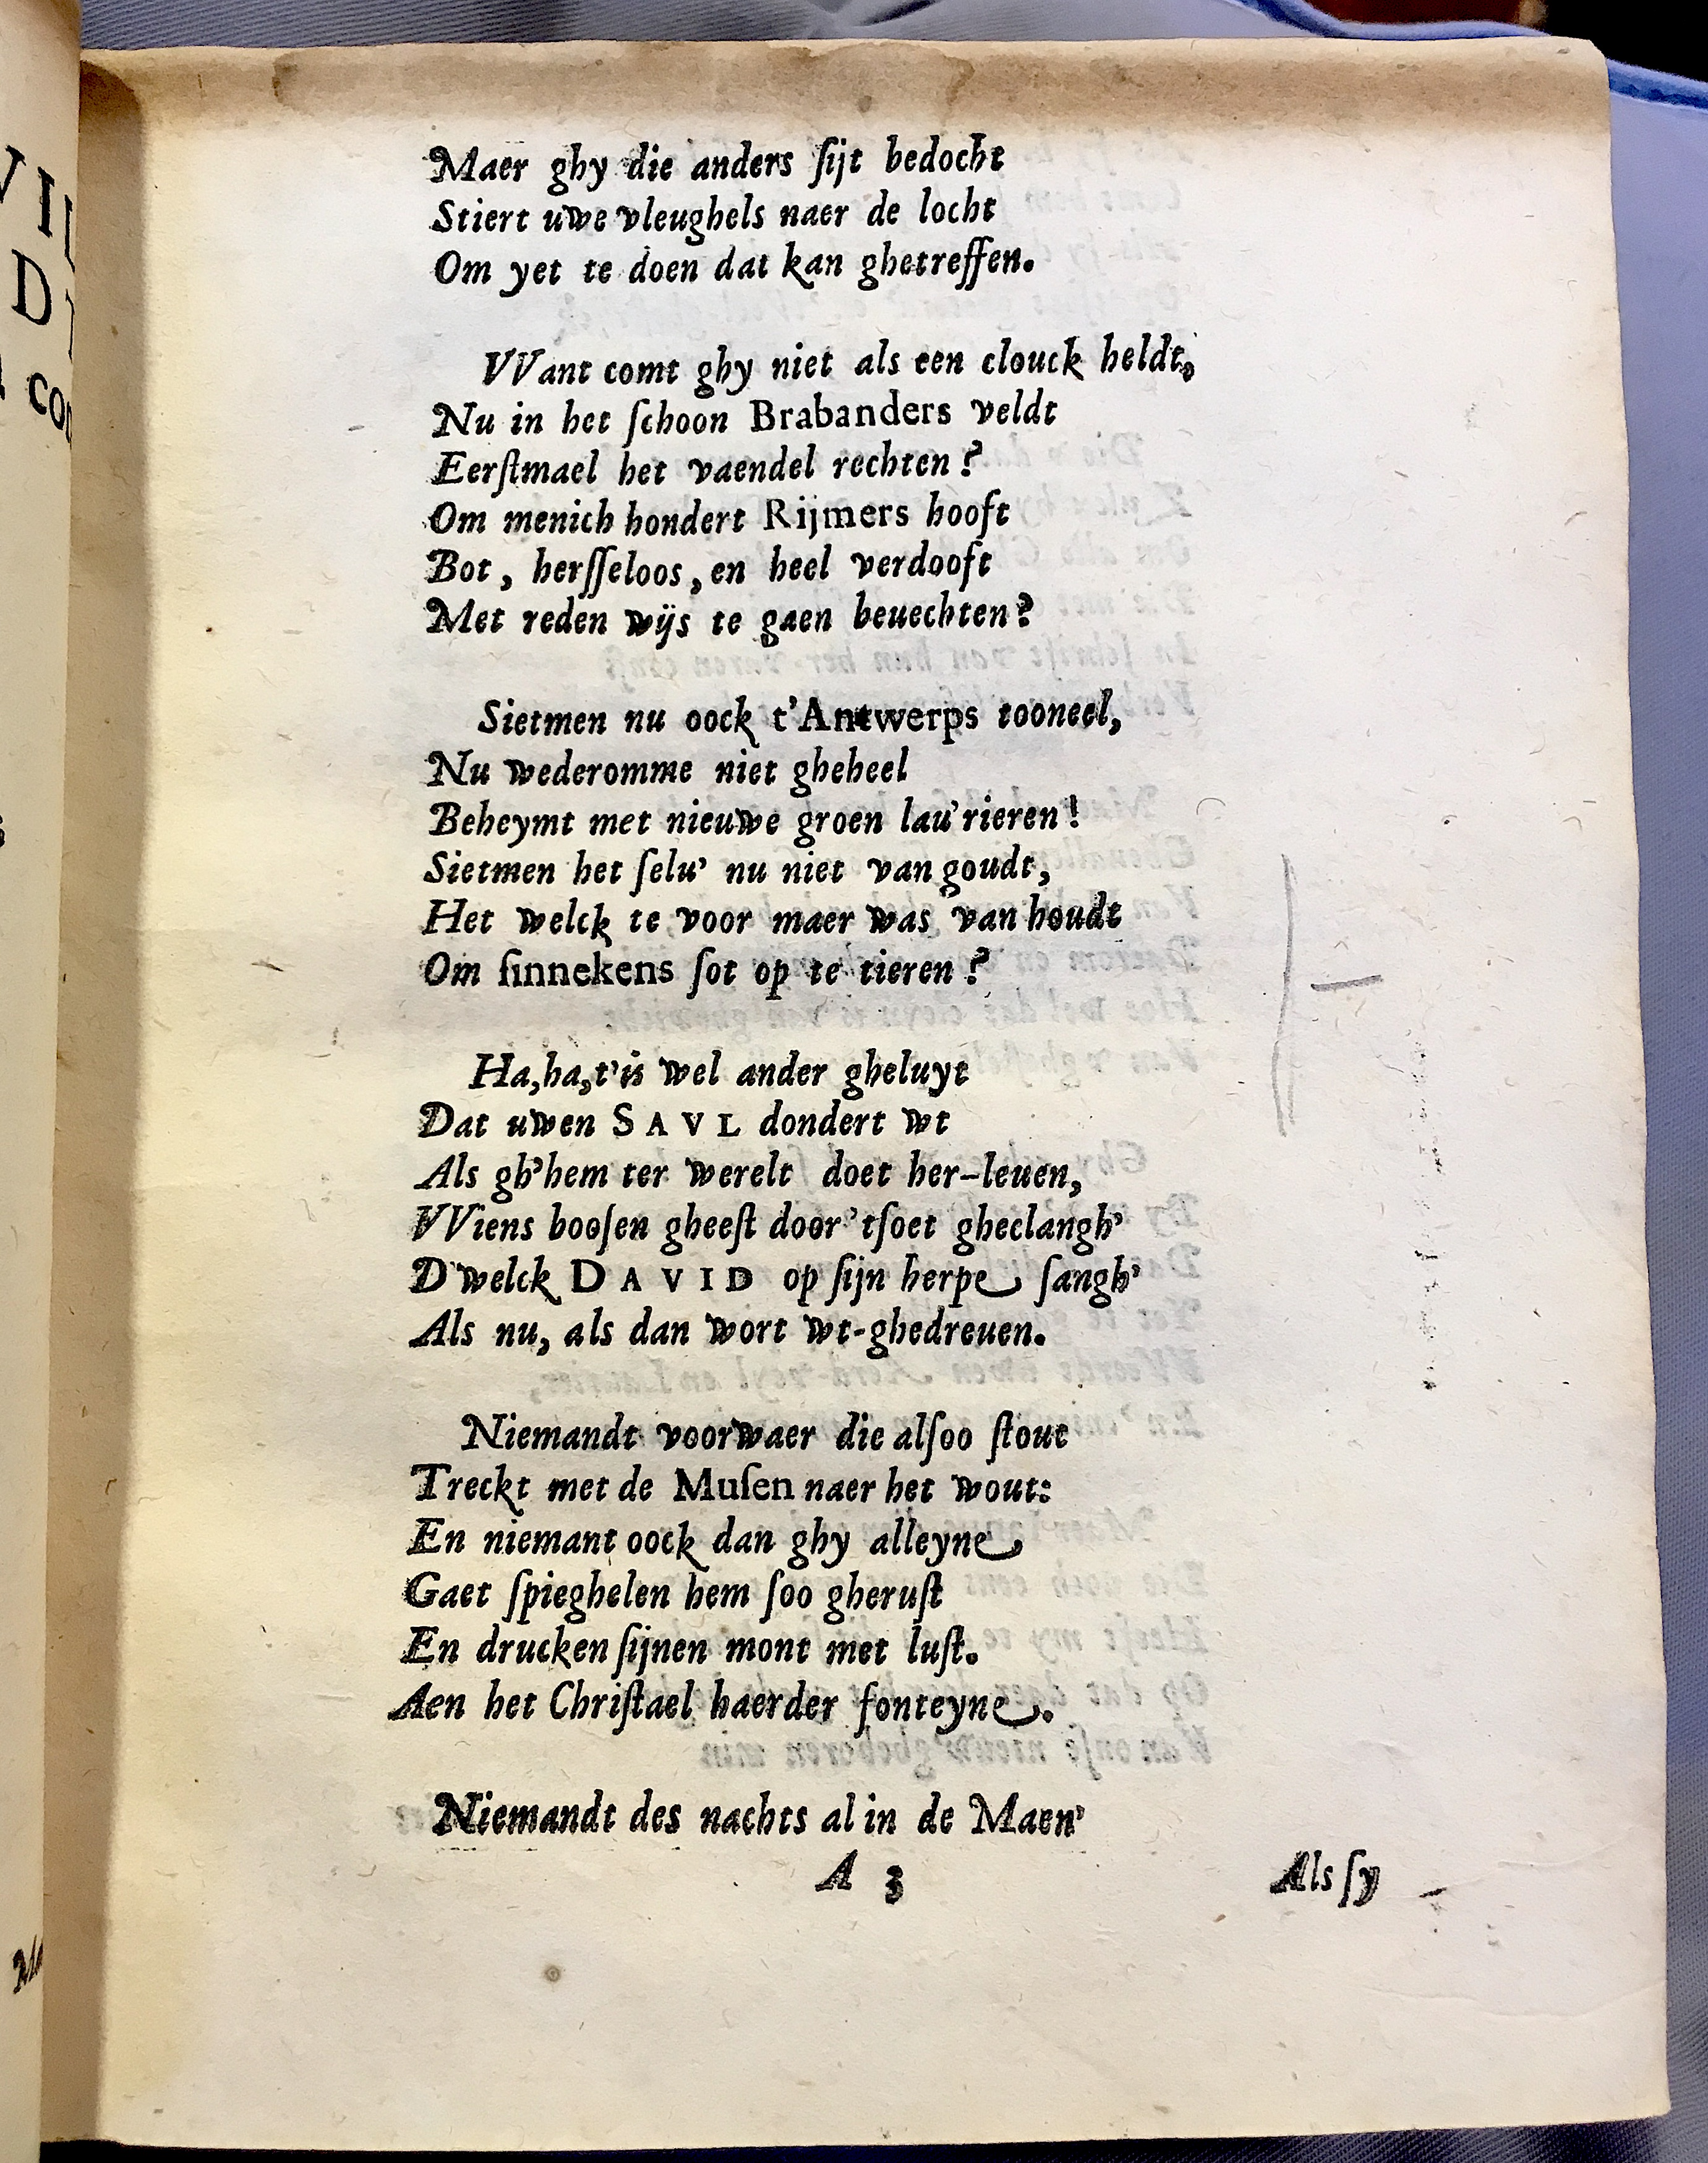 Maer ghy die anders ſijt bedocht
Stiert uwe vleughels naer de locht
Om yet te doen dat kan ghetreffen.
VVant comt ghy niet als een clouck heldt,
Nu in het ſchoon Brabanders veldt
Eerſtmael het vaendel rechten?
Om menich hondert Rijmers hooft
Bot, herſſeloos, en heel verdooft
Met reden wijs te gaen beuechten?
Sietmen nu oock t'Antwerps tooneel,
Nu wederomme niet gheheel
Beheymt met nieuwe groen lau'rieren!
Sietmen het ſelu' nu niet van goudt,
Het welck te voor maer was van houdt
Om ſinnekens ſot op te tieren?
Ha, ha, t'is wel ander gheluyt
Dat uwen SAVL dondert wt
Als gh'hem ter werelt doet her-leuen,
VViens booſen gheeſt door 'tſoet gheclangh'
D'welck DAVID op ſijn herpe ſangh'
Als nu, als dan wort wt-ghedreuen.
Niemandt voorwaer die alſoo ſtout
Treckt met de Muſen naer het wout:
En niemant oock dan ghy alleyne
Gaet ſpieghelen hem ſoo gheruſt
En drucken ſijnen mont met luſt.
Aen het Chriſtael haerder fonteyne.
Niemandt des nachts al in de Maen'
A 3
Als ſy